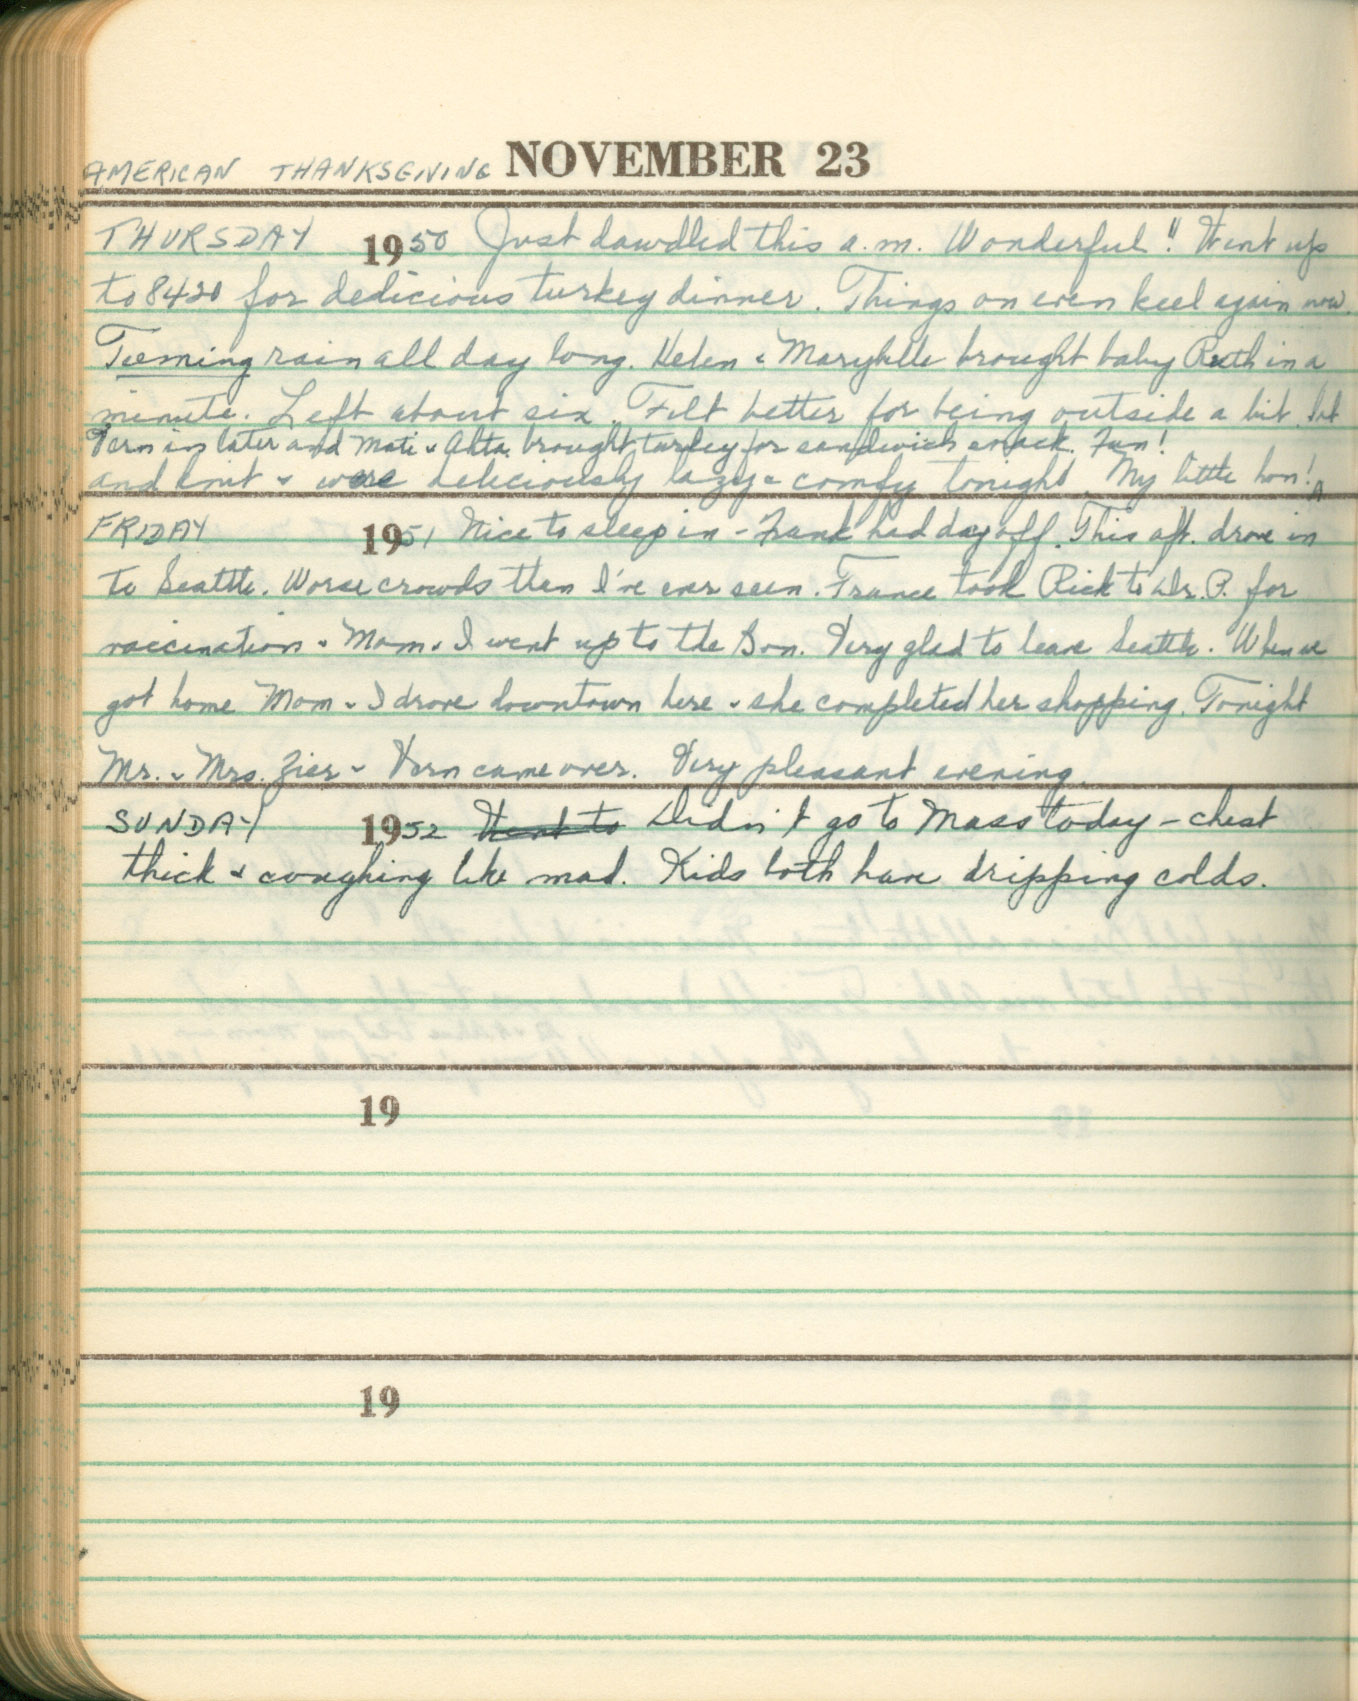 AMERICAN THANKSGIVING NOVEMBER 23
THURSDAY 1950 Just dawdled this a.m. Wonderful!! Went up
to 8420 for dedicious turkey dinner. Things on even keel again now.
Teeming rain all day long. Helen & Marybelle brought baby Ruth in a
minute. Left about six. Felt better for being outside a bit. Sat
Vern in later and Mati & Alta brought turkey for sandwich snack. Fun!
and knit & were deliciously lazy & comfy tonight. My little hon!
FRIDAY 1951 Nice to sleep in - Frank had day off. This aft. drove in
to Seattle. Worse crowds than I've ever seen. France took Rick to Dr. P. for
vaccination & Mom & I went up to the Bon. Very glad to leave Seattle. When we
got home Mom & I drove downtown here & she completed her shopping. Tonight
Mr. & Mrs. Zier & Vern came over. Very pleasant evening.
SUNDAY 1952 Went to Didn't go to Mass today - chest
thick & coughing like mad. Kids both have dripping colds.
19
19